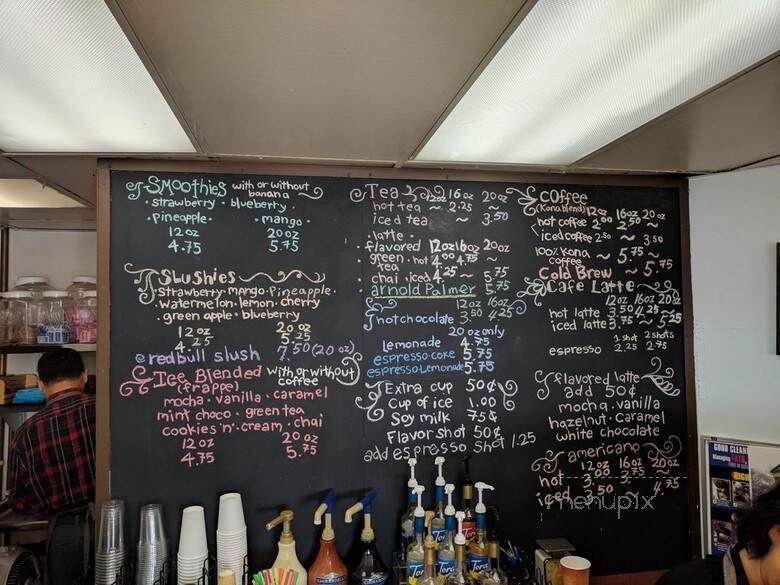 Smoothies with or without banana
• strawberry • blueberry •
• pineapple • • mango •
12 oz 20 oz
4.75 5.75
Slushies
strawberry • mango • pineapple •
watermelon • lemon • cherry
• green apple • blueberry
12 oz 20 oz
4.25 5.25
redbull slush 7.50 (20 oz)
Ice Blended with or without coffee
(frappe)
mocha • vanilla • caramel
mint choco • green tea
cookies 'n' cream • chai
12 oz 20 oz
4.75 5.75
Tea 12oz 16oz 20oz
hot tea ~ 2.25 ~
iced tea ~ 3.50
• latte •
• flavored 12oz 16oz 20oz
• green tea • hot 4.00 4.75 ~
• chai • iced 4.25 ~ 5.75
arnold Palmer 5.75
12oz 16oz
hot chocolate 3.50 4.25
20oz only
Lemonade 4.75
espresso-coke 5.75
espresso-Lemonade 5.75
Extra cup 50¢
Cup of ice 1.00
Soy milk 75¢
Flavor shot 50¢
add espresso shot 1.25
coffee
(Kona blend) 12oz 16oz 20oz
hot coffee 2.00 2.50 ~
iced coffee 2.50 ~ 3.50
100% Kona coffee ~ 5.75 ~
Cold Brew ~ 5.75
Cafe Latte
12oz 16oz 20oz
hot latte 3.50 4.25 ~
iced latte 3.75 ~ 5.25
1 shot 2 shots
espresso 2.25 2.75
flavored latte
add 50¢
mocha • vanilla
hazelnut • caramel
white chocolate
americano
12oz 16oz 20oz
hot 3.00 3.75 ~
iced 3.50 ~ 4.75
menupix
GOOD CLEAN
Torani